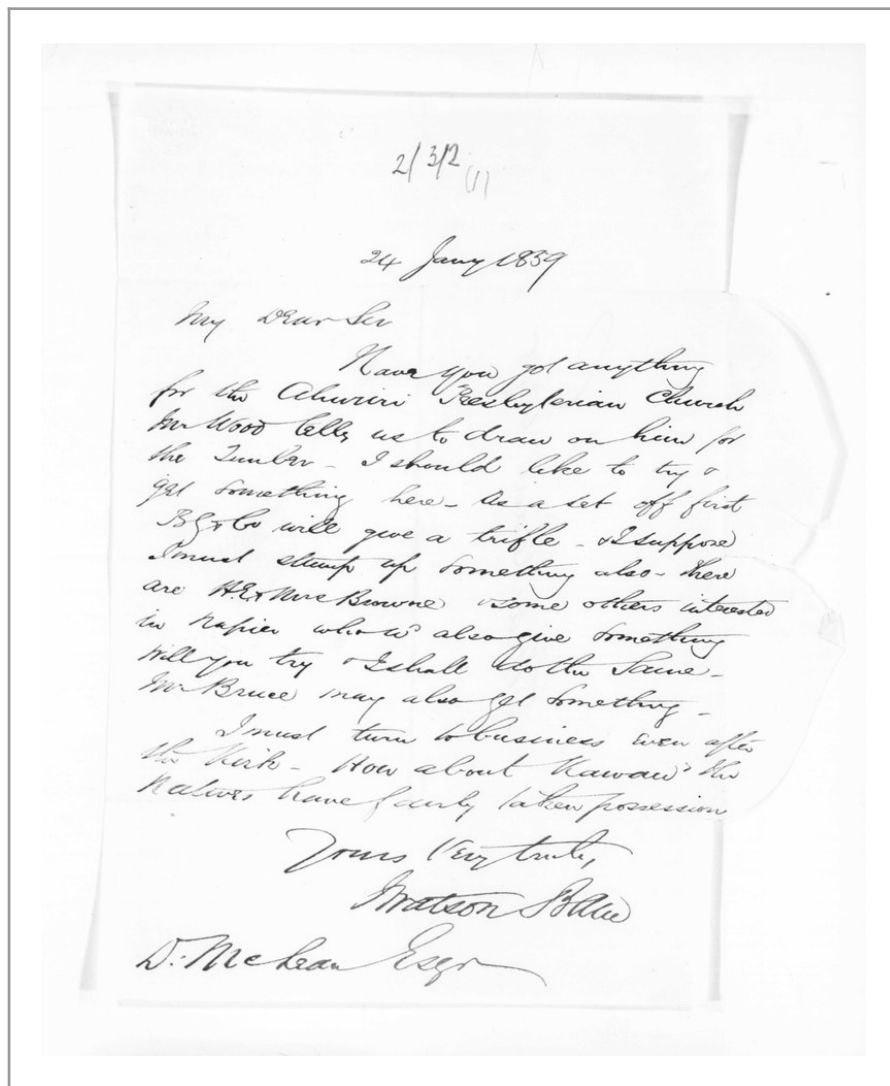 2/3/2
(1)
24 Jany 1859
My Dear Sir
Have you got anything
for the Ahuriri Presbyterian Church
Mr Wood tells us to draw on him for
the Timber - I should like to try &
get something here - As a set off first
B G & Co will give a trifle - & I suppose
I must stump up something also - there
are H.E. & Mrs Browne & some others interested
in Napier who wd also give something
Will you try & I shall do the Same -
Mr Bruce may also get something -
I must turn to business even after
the Kirk - How about Kawau the
Natives have fairly taken possession
Yours Very truly,
J Watson Bain
D. McLean Esqr